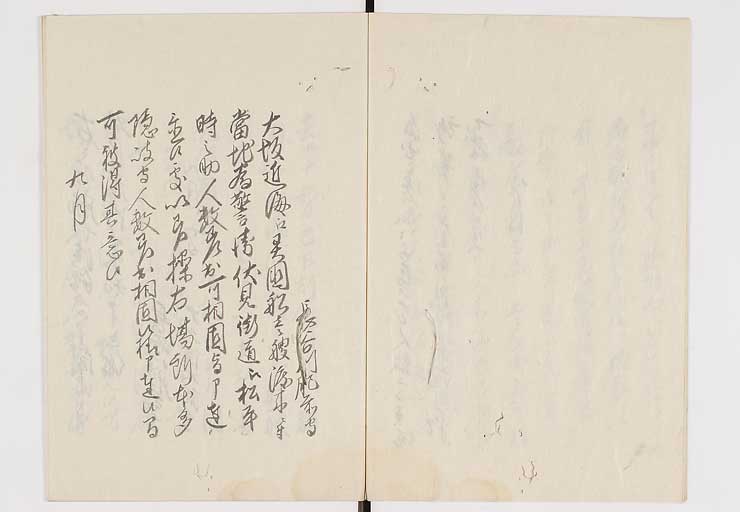 長谷川肥前守
大坂近海江異国船壱艘渡来ニ付
當地為警衛伏見街道江松平
時之助人数差出可相固旨申達
候処以差操右場所本多
隠岐守人数差出相固候様申達候間
可被得其意候
九月